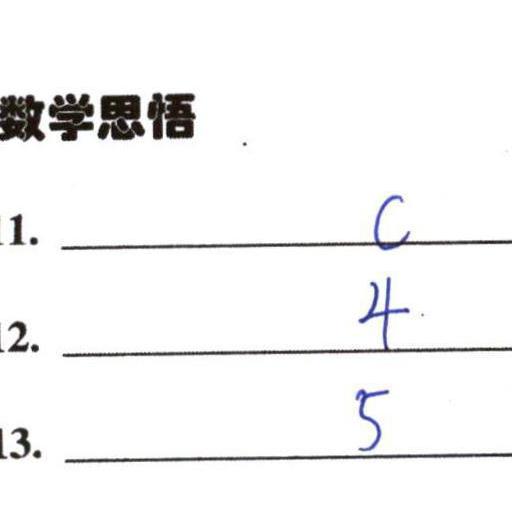 数学思悟
11. C
12. 4
13. 5